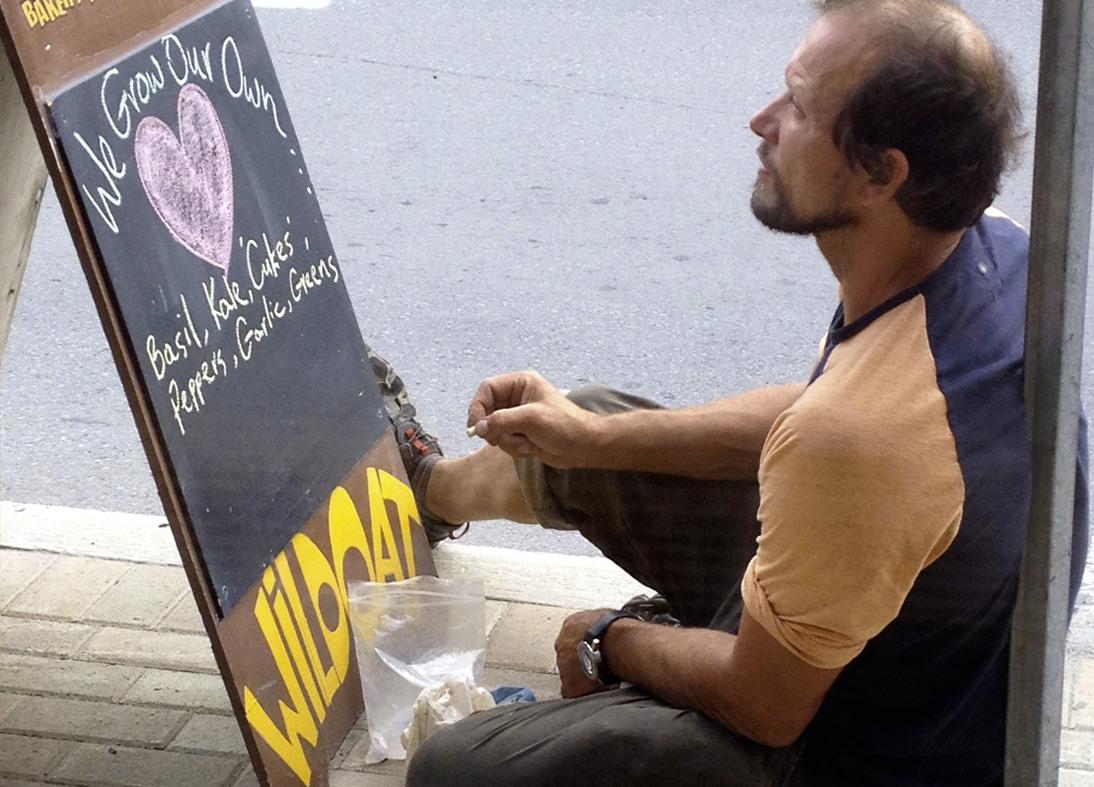 BAKERY
We Grow Our Own...
Basil, Kale, 'Cukes',
Peppers, Garlic, Greens
WILDOAT